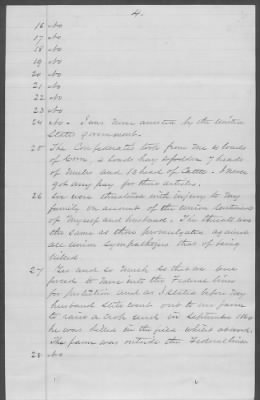 4.
16 No
17 No
18 No
19 No
20 No
21 No
22 No
23 No
24 No. I was never arrested by the United
States government.
25 The Confederates took from me 6 loads
of Corn, 2 loads hay & fodder 7 heads
of Mules and 13 head of Cattle. I never
got any pay for these articles.
26 We were threatened with injury to my
family on account of the Union sentiments
of Myself and husband. The threats was
the same as those promulgated against
all Union Sympathizers that of being
killed.
27 Yes and so much so that we were
forced to move into the Federal lines
for protection and as I stated before my
husband still went out to our farm
to raise a crop until in September 1864
he was killed in the field whilst at work.
The farm was outside the Federal lines
28 No